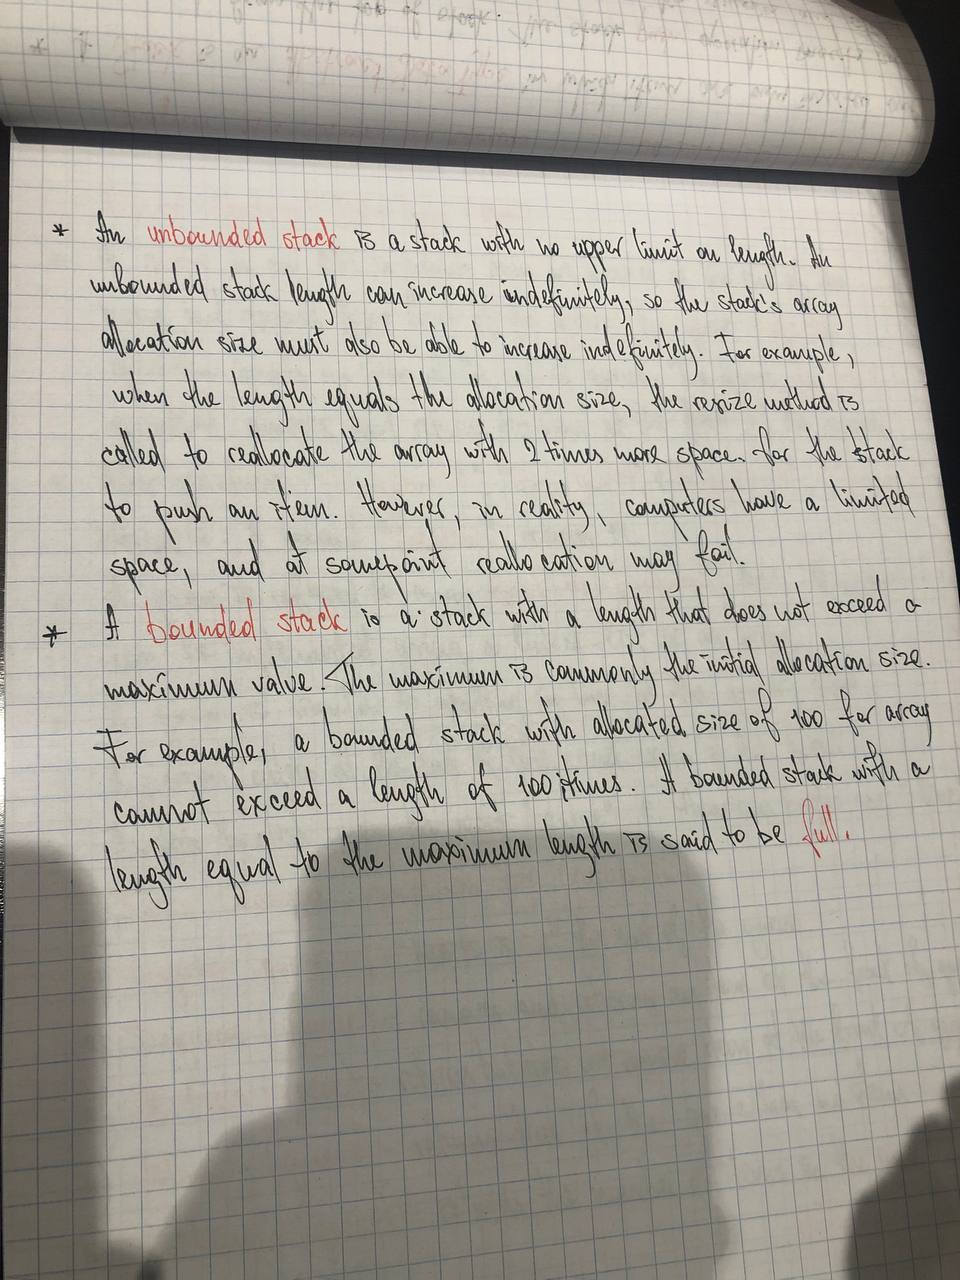 * An unbounded stack is a stack with no upper limit on length. An
unbounded stack length can increase indefinitely, so the stack's array
allocation size must also be able to increase indefinitely. For example,
when the length equals the allocation size, the resize method is
called to reallocate the array with 2 times more space. for the stack
to push an item. However, in reality, computers have a limited
space, and at somepoint reallocation may fail.
* A bounded stack is a stack with a length that does not exceed a
maximum value. The maximum is commonly the initial allocation size.
For example, a bounded stack with allocated size of 100 for array
cannot exceed a length of 100 itimes. A bounded stack with a
length equal to the maximum length is said to be full.